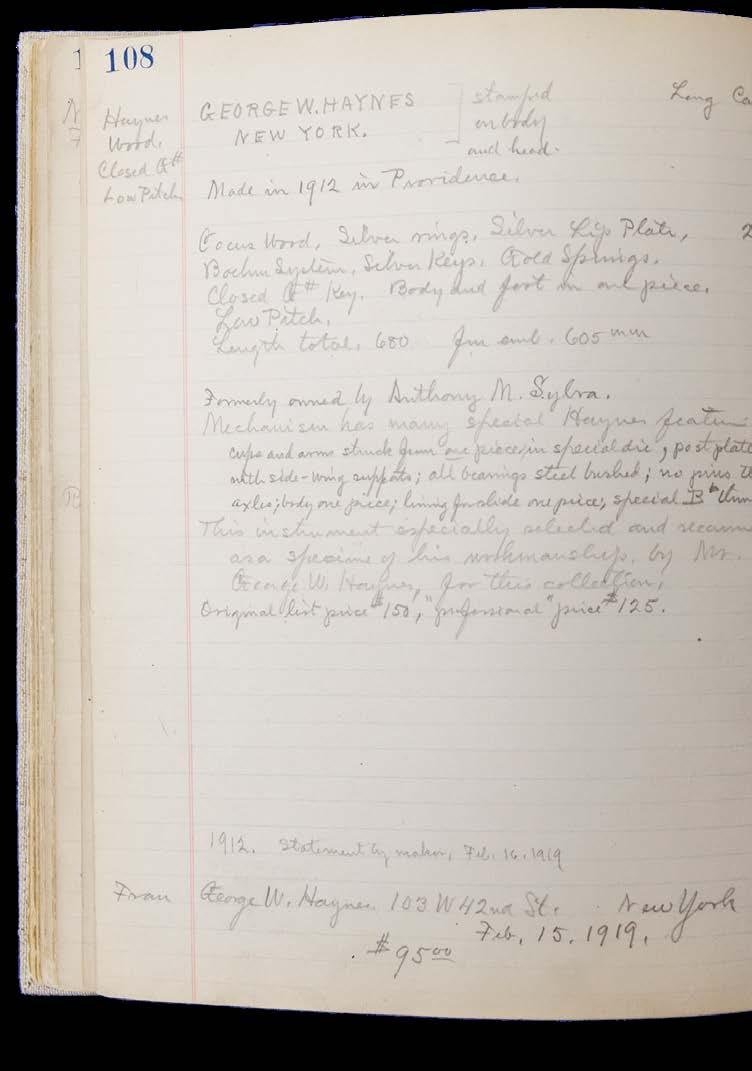 108
Haynes
Wood.
Closed G#
Low Pitch.
GEORGE W. HAYNES
NEW YORK.
stamped
on body
and head.
Long
Made in 1912 in Providence.
Cocus Wood, Silver rings, Silver Lip Plate,
Boehm System, Silver Keys, Gold Springs.
Closed G# Key. Body and foot in one piece.
Low Pitch.
Length total, 680 fm emb. 605 mm
Formerly owned by Anthony M. Sylva.
Mechanism has many special Haynes
cups and arms struck from one piece, in special die; post plate
with side-wing supports; all bearings steel bushed; no pins
axles; body one piece; lining for slide one piece, special B♭
This instrument especially selected and
as a specime of his workmanship, by Mr.
George W. Haynes, for this collection.
Original list price $150, "professional" price $125.
1912. Statement by maker, Feb. 16. 1919
From George W. Haynes. 103 W 42nd St. New York
Feb. 15. 1919.
$95 00